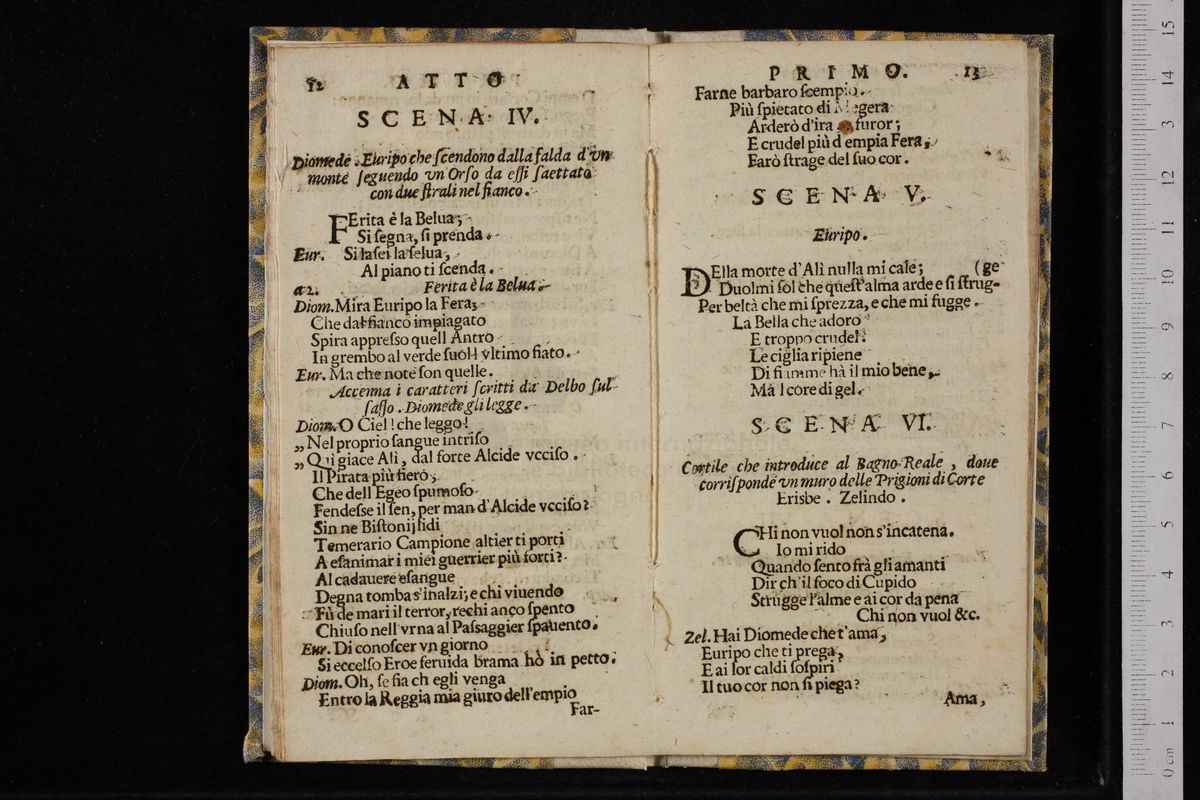 12 ATTO
SCENA IV.
Diomede. Euripo che ſcendono dalla falda d'vn
monte ſeguendo vn Orſo da eſſi ſaettato
con due ſtrali nel fianco.
FErita è la Belua;
Si ſegna, ſi prenda.
Eur. Si laſci la ſelua,
Al piano ti ſcenda.
a 2. Ferita è la Belua.
Diom. Mira Euripo la Fera;
Che dal fianco impiagato
Spira appreſſo quell Antro
In grembo al verde ſuol l vltimo fiato.
Eur. Ma che note ſon quelle.
Accenna i caratteri ſcritti da Delbo ſul
ſaſſo. Diomede gli legge.
Diom. O Ciel! che leggo!
„Nel proprio ſangue intriſo
„Qui giace Alì, dal forte Alcide vcciſo.
Il Pirata più fiero,
Che dell Egeo ſpumoſo
Fendeſſe il ſen, per man d'Alcide vcciſo?
Sin ne Biſtonij lidi
Temerario Campione altier ti porti
A eſanimar i miei guerrier più forti?
Al cadauere eſangue
Degna tomba s'inalzi; e chi viuendo
Fù de mari il terror, rechi anco ſpento
Chiuſo nell'vrna al Paſſaggier ſpauento.
Eur. Di conoſcer vn giorno
Si eccelſo Eroe feruida brama hò in petto.
Diom. Oh, ſe fia ch egli venga
Entro la Reggia mia giuro dell'empio
Far-
PRIMO. 13
Farne barbaro ſcempio.
Più ſpietato di Megera
Arderò d'ira furor;
E crudel più d empia Fera,
Farò ſtrage del ſuo cor.
SCENA V.
Euripo.
DElla morte d'Alì nulla mi cale; (ge
Duolmi ſol che queſt'alma arde e ſi ſtrug-
Per beltà che mi ſprezza, e che mi fugge.
La Bella che adoro
E troppo crudel:
Le ciglia ripiene
Di fiamme hà il mio bene,
Mà l core di gel.
SCENA VI.
Cortile che introduce al Bagno Reale, doue
corriſponde vn muro delle Prigioni di Corte
Erisbe. Zelindo.
CHi non vuol non s'incatena.
Io mi rido
Quando ſento frà gli amanti
Dir ch'il foco di Cupido
Strugge l'alme e ai cor da pena
Chi non vuol &c.
Zel. Hai Diomede che t'ama,
Euripo che ti prega,
E ai lor caldi ſoſpiri
Il tuo cor non ſi piega?
Ama,
0 cm 1 2 3 4 5 6 7 8 9 10 11 12 3 14 15